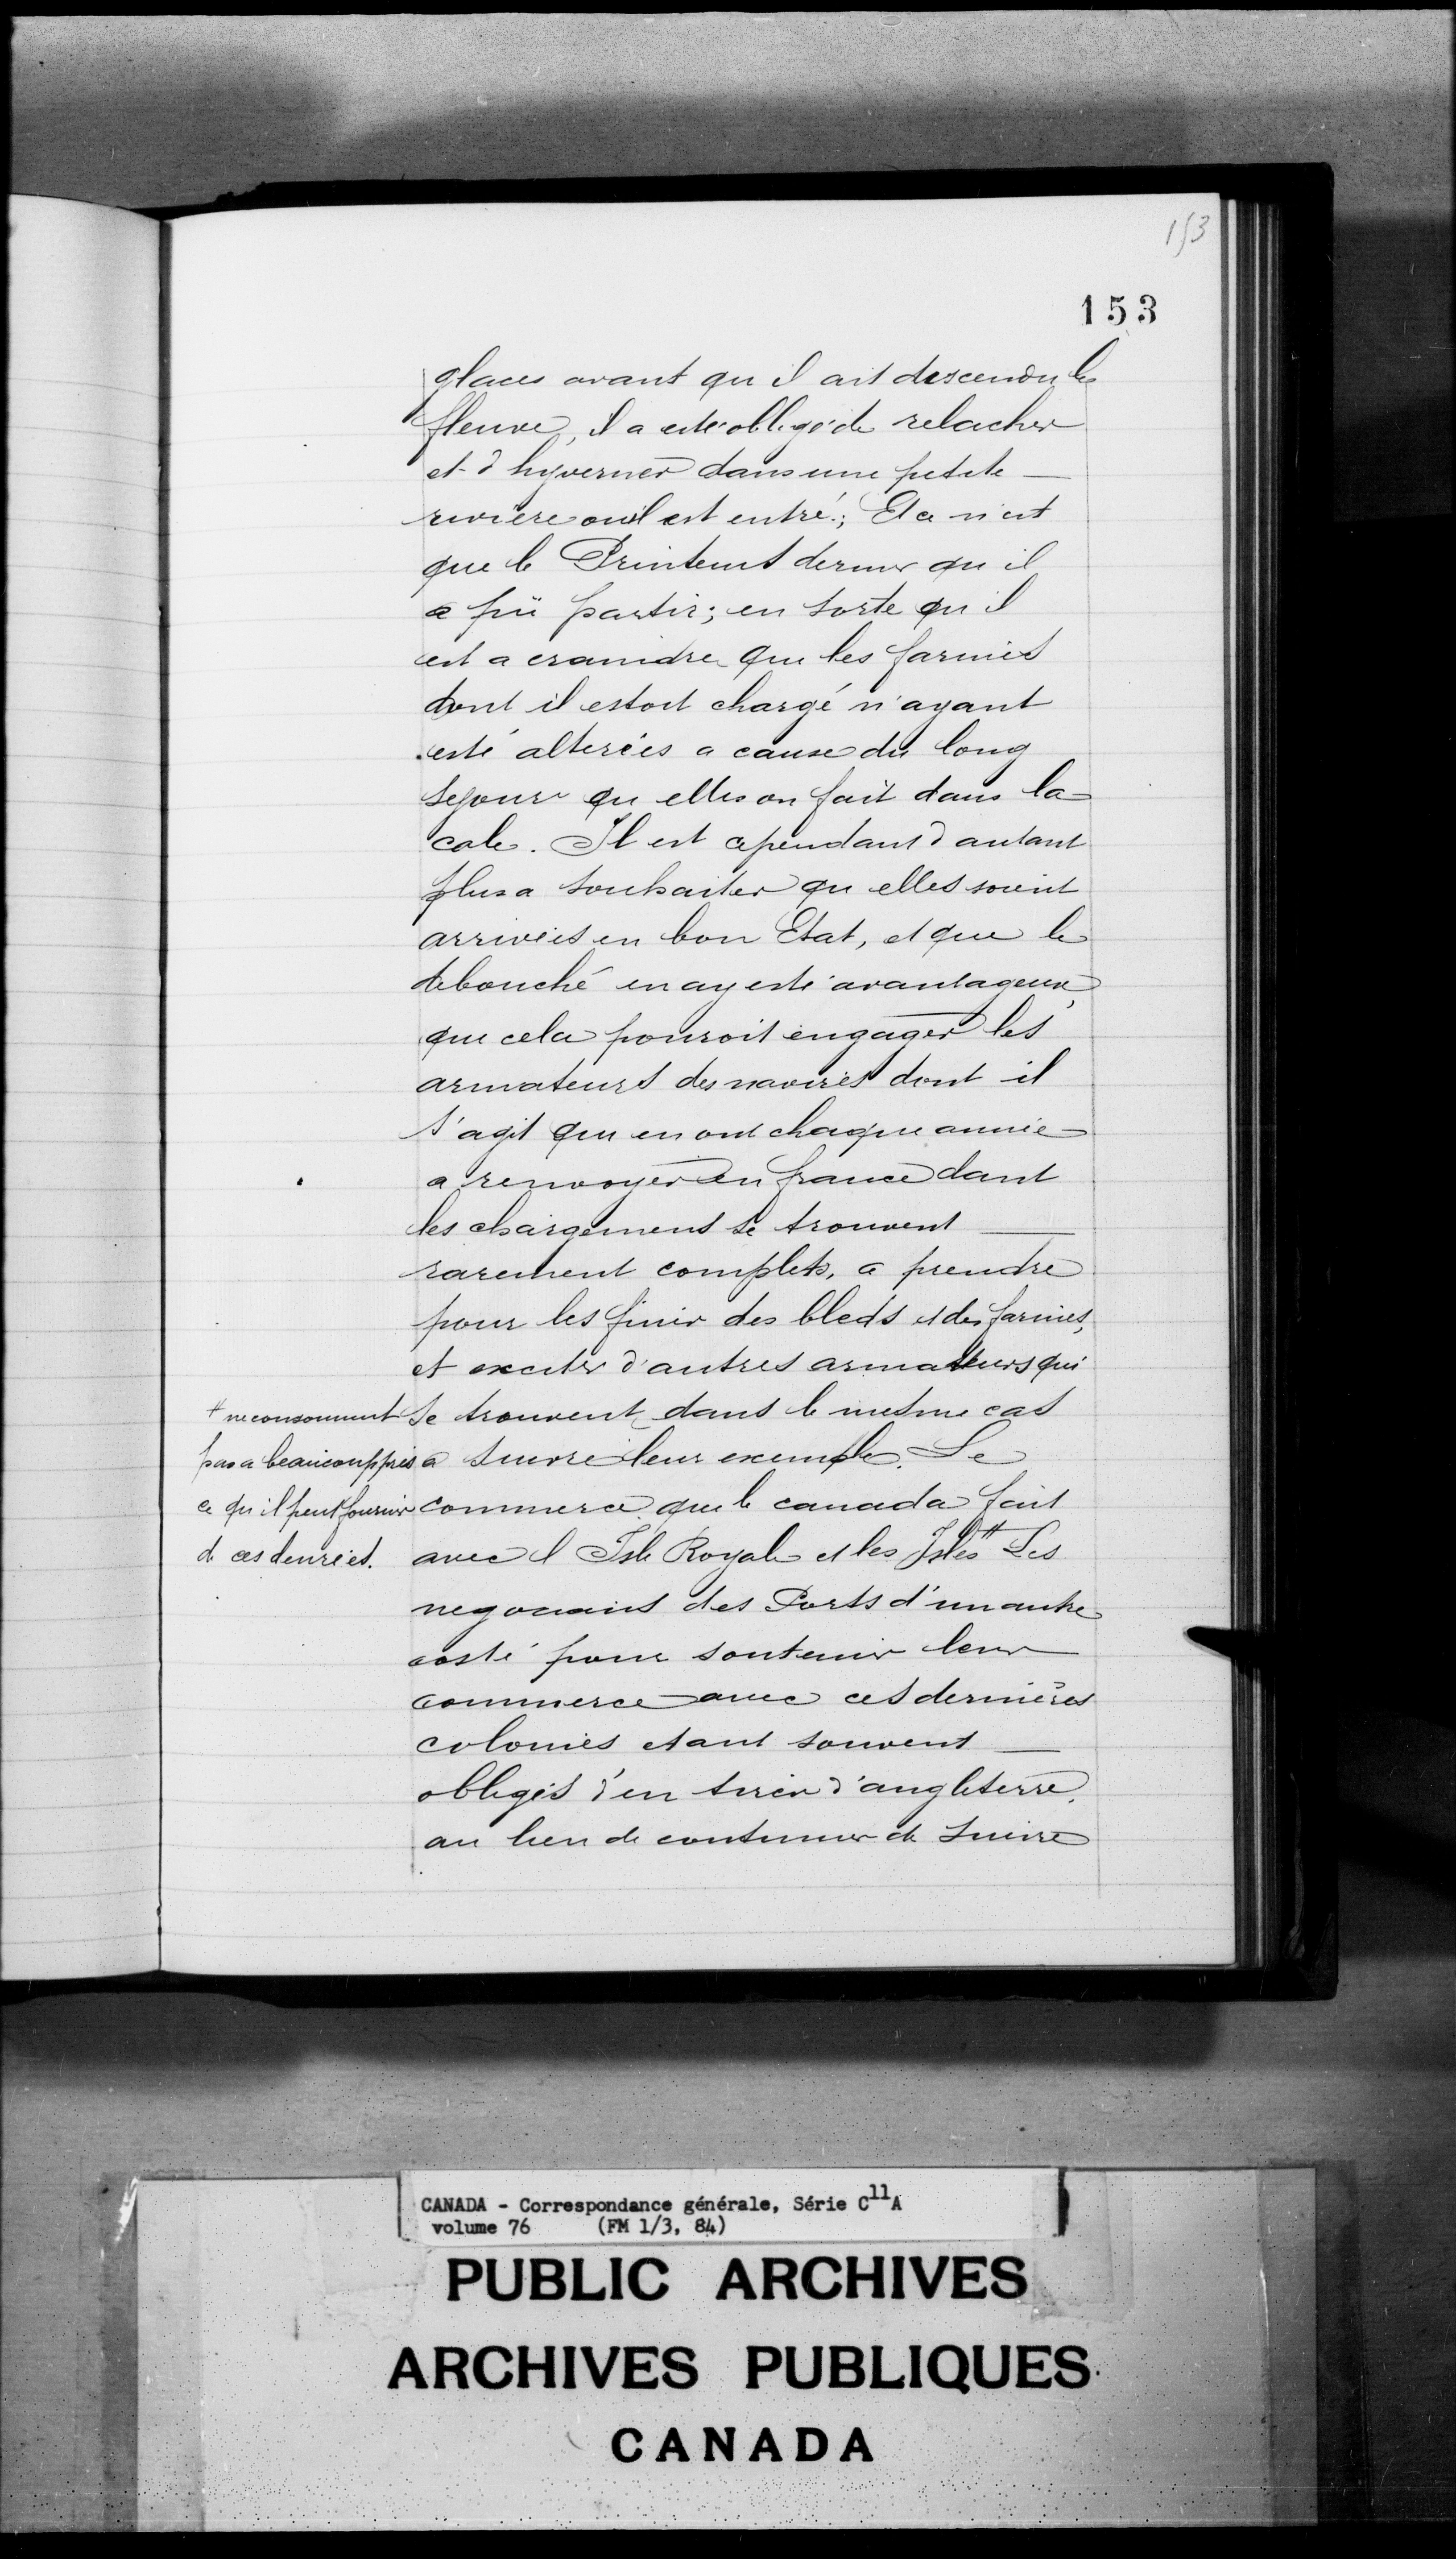 153
153
glaces avant qu il ait descendu le
fleuve, il a esté obligé de relacher
et d hyverner dans une petite
riviere ou il est entré; Et ce n'est
que le Printems dernier qu il
a pü partir; en sorte qu il
est a craindre que les farines
dont il estoit chargé n'ayant
esté alterées a cause du long
sejour qu elles on fait dans la
cale. Il est cependant d autant
plus a souhaiter qu elles soient
arrivées en bon Etat, et que le
debouché en ay esté avantageux,
que cela pouroit engager les
armateurs des navires dont il
s'agit qui en ont chaque année
a renvoyer en france dant
les chargemens se trouvent
rarement complets, a prendre
pour les finir des bleds et des farines,
et exciter d'autres armateurs qui
se trouvent dans le mesme cas
a suivre leur exemple. Le
commerce que le canada fait
avec l Isle Royale et les Isles # Les
negocians des Ports d'un autre
costé pour soutenir leur
commerce avec ces dernières
colonies etant souvent
obligés d'en tirer d'angleterre.
au lieu de continuer de suivre
# ne consomment
pas a beaucoup près
ce qu il peut fournir
de ces denrées.
CANADA - Correspondance générale, Série C11A
volume 76 (FM 1/3, 84)
PUBLIC ARCHIVES
ARCHIVES PUBLIQUES
CANADA